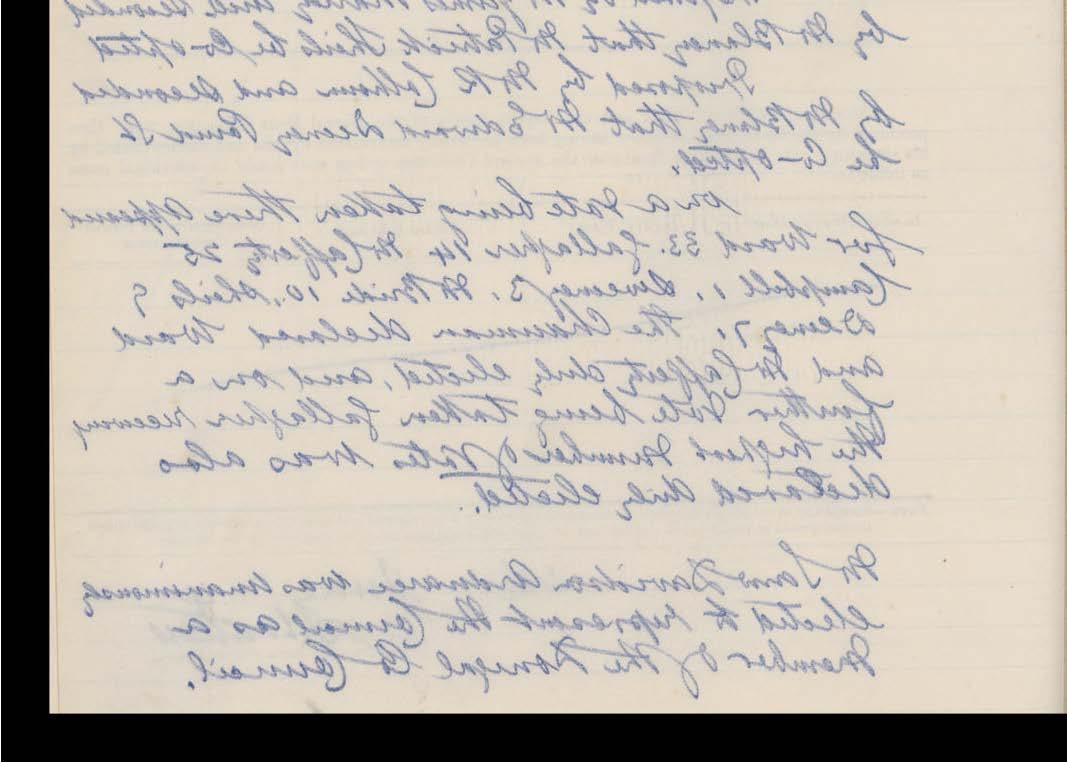 Proposed by Mr James and Seconded
by Mr Blaney that Mr Patrick Sheils be Co-opted
Proposed by Mr R Colhoun and Seconded
by Mr Blaney that Mr Edward Deeney Pound St
be Co-opted.
On a Vote being taken there appeared
for Ward 33. Gallagher 14 McCafferty 25
Campbell 1, Sweeney 3, McBride 10, Sheils 9
Deeney 7. The Chairman declared Ward
and McCafferty duly elected, and on a
further Vote being taken Gallagher receiving
the highest number of Votes was also
declared duly elected.
Mr Saml Davidson was Unanimously
elected to represent the Council as a
Member of the Donegal Co Council.